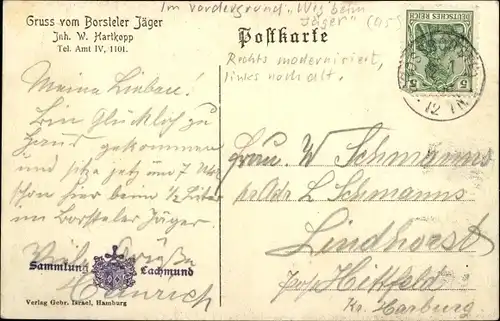 Gruss vom Borsteler Jäger
Jnh. W. Hartkopp
Tel. Amt IV, 1101.
Im Vordergrund „Weg beim
Jäger"
Postkarte
Rechts modernisiert,
links noch alt.
DEUTSCHES REICH
5 5
12
Meine Lieben!
Bin Glücklich zu
Haus gekommen
und sitze jetz um 7 Uhr
schon hier beim ½ Liter
im Borsteler Jäger.
Viele Grüße
Heinrich
Frau. W Schmanns
pr Adr L Schmanns
Lindhorst
Post Hittfeld
Kr. Harburg
Sammlung Lachmund
Verlag Gebr. Israel, Hamburg